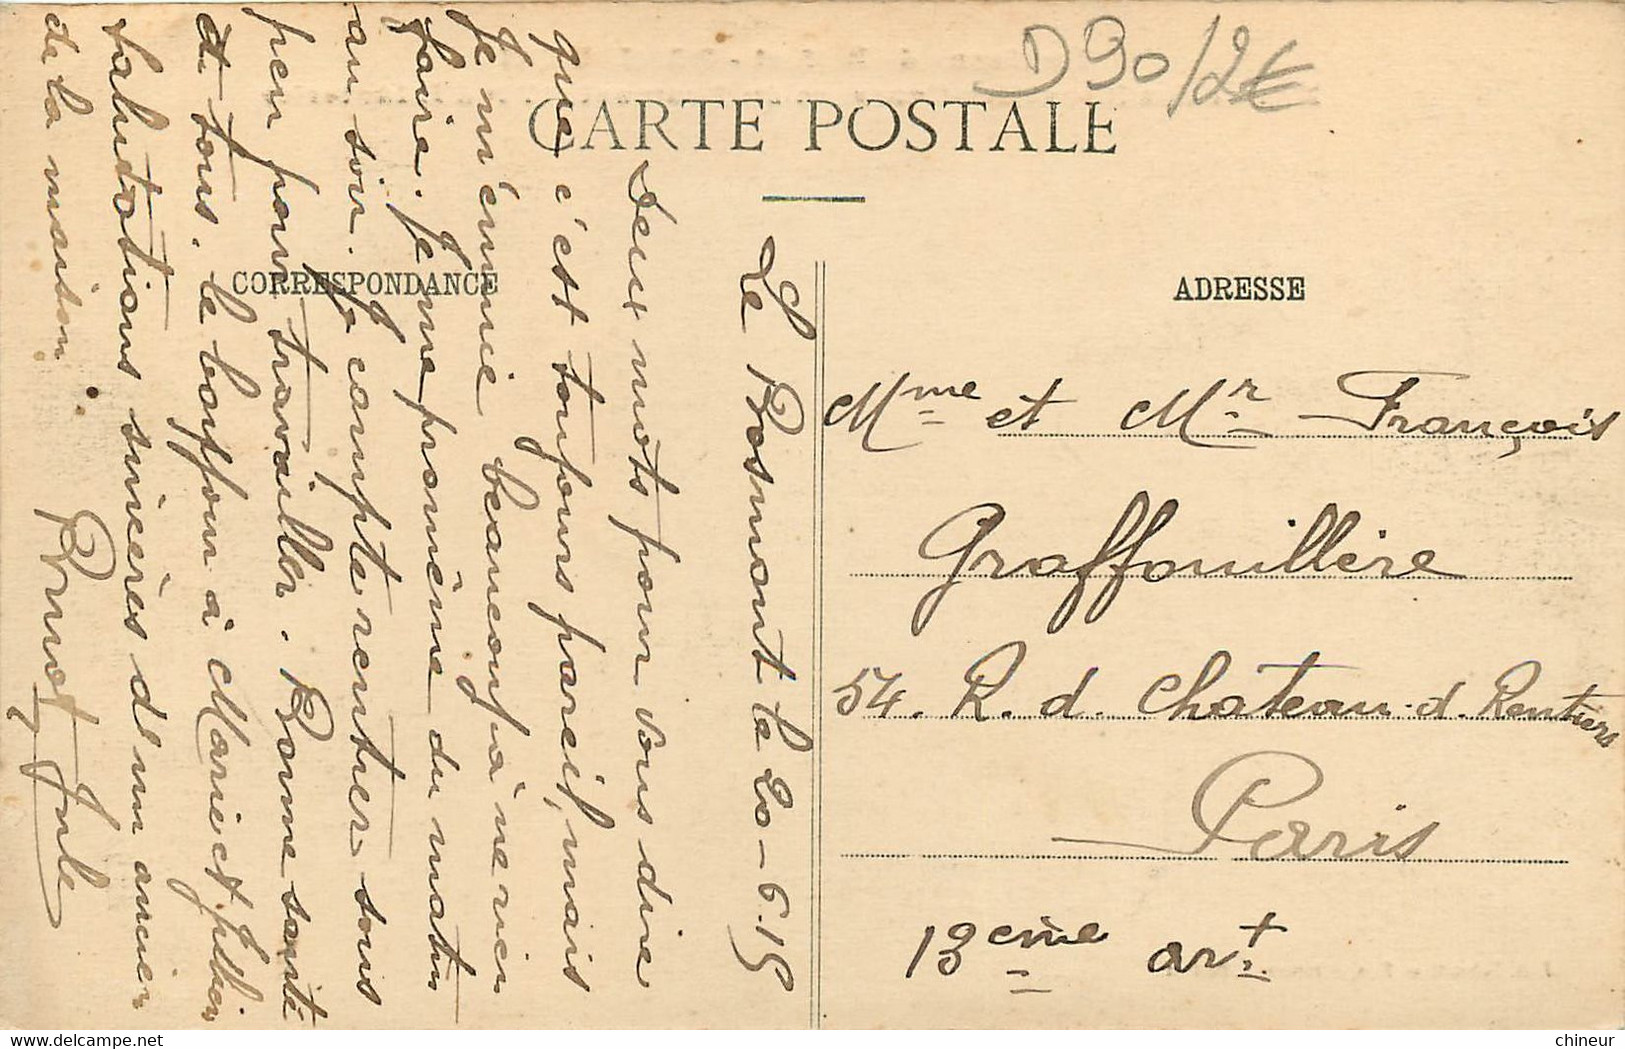 D90/2€
CARTE POSTALE
CORRESPONDANCE
ADRESSE
Le Rosmont le 20-6.15
Deux mots pour vous dire
que c'est toujours pareil, mais
Je m'ennuie beaucoup à ne rien
faire. Je me promène du matin
au soir. Je compte rentrer sous
peu pour travailler. Bonne santé
à tous. le bonjour à Marie et
salutations sincères d'un ancien
de la maison.
Jule
Mme et Mr François
Graffouillère
54. R. d. Chateau. d. Rentiers
Paris
13eme art
chineur